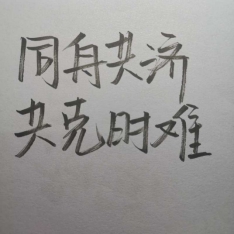 同舟共济
共克时难